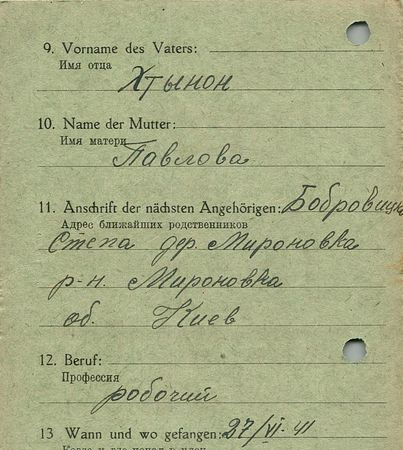 9. Vorname des Vaters:
Имя отца
Хтынон
10. Name der Mutter:
Имя матери
Павлова
11. Anschrift der nächsten Angehörigen: Бобровицка
Адрес ближайших родственников
Степа дер. Мироновка
р-н. Мироновка
об. Киев
12. Beruf:
Профессия
робочий
13 Wann und wo gefangen: 27/VI-41
Когда и где попал в плен